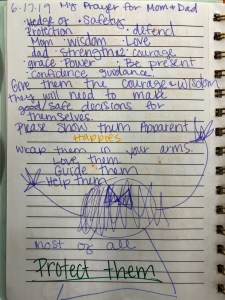 6-17-19 My Prayer for Mom + Dad
· hedge of · Safety
Protection · defend
Mom · wisdom · Love
dad · strength · courage
grace · Power · Be present
· Confidence guidance
Give them the courage & wisdom
they will need to make
good/safe decisions for
themselves.
Please show them Apparent
Happies
Wrap them in your arms.
Love them
Guide them
Help them
Most of all
Protect them